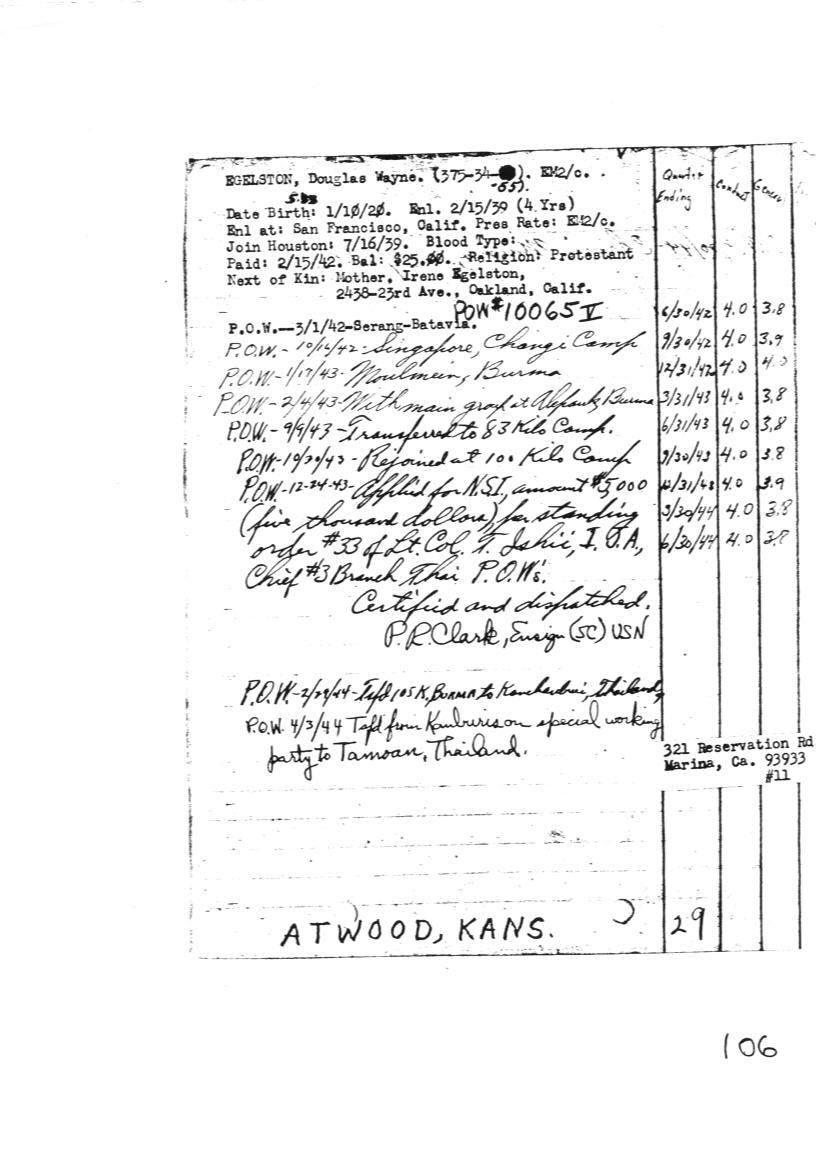 EGELSTON, Douglas Wayne. (375-34- ). EM2/c.
-55).
Date Birth: 1/10/20. Enl. 2/15/39 (4 Yrs)
Enl at: San Francisco, Calif. Pres Rate: EM2/c.
Join Houston: 7/16/39. Blood Type:
Paid: 2/15/42. Bal: $25.00. Religion: Protestant
Next of Kin: Mother, Irene Egelston,
2438-23rd Ave., Oakland, Calif.
POW#10065 V
P.O.W.--3/1/42-Serang-Batavia.
P.O.W.- 10/16/42-Singapore, Changi Camp
P.O.W-1/17/43- Moulmein, Burma
P.O.W- 2/4/43-With main group at Burma
P.O.W.- 9/9/43-Transferred to 83 Kilo Camp.
P.O.W.-10/30/43-Rejoined at 100 Kilo Camp
P.O.W.-12-24-43-Applied for N.S.I., amount $5,000
(five thousand dollars), for standing
order #33 of Lt. Col. T. Ishii, I.J.A.,
Chief #3 Branch Thai P.O.W's.
Certified and dispatched.
P.R. Clark, Ensign (SC) USN
P.O.W.-2/29/44-Tsfd 105 K. Burma to Thailand,
P.O.W. 4/3/44 Tsfd from on special working
party to Tamoan, Thailand.
ATWOOD, KANS.
Quarter Ending Conduct
6/30/42 4.0 3.8
9/30/42 4.0 3.9
12/31/42 4.0 4.0
3/31/43 4.0 3.8
6/31/43 4.0 3.8
9/30/43 4.0 3.8
12/31/43 4.0 3.9
3/30/44 4.0 3.8
6/30/44 4.0 3.8
321 Reservation Rd
Marina, Ca. 93933
#11
29
106